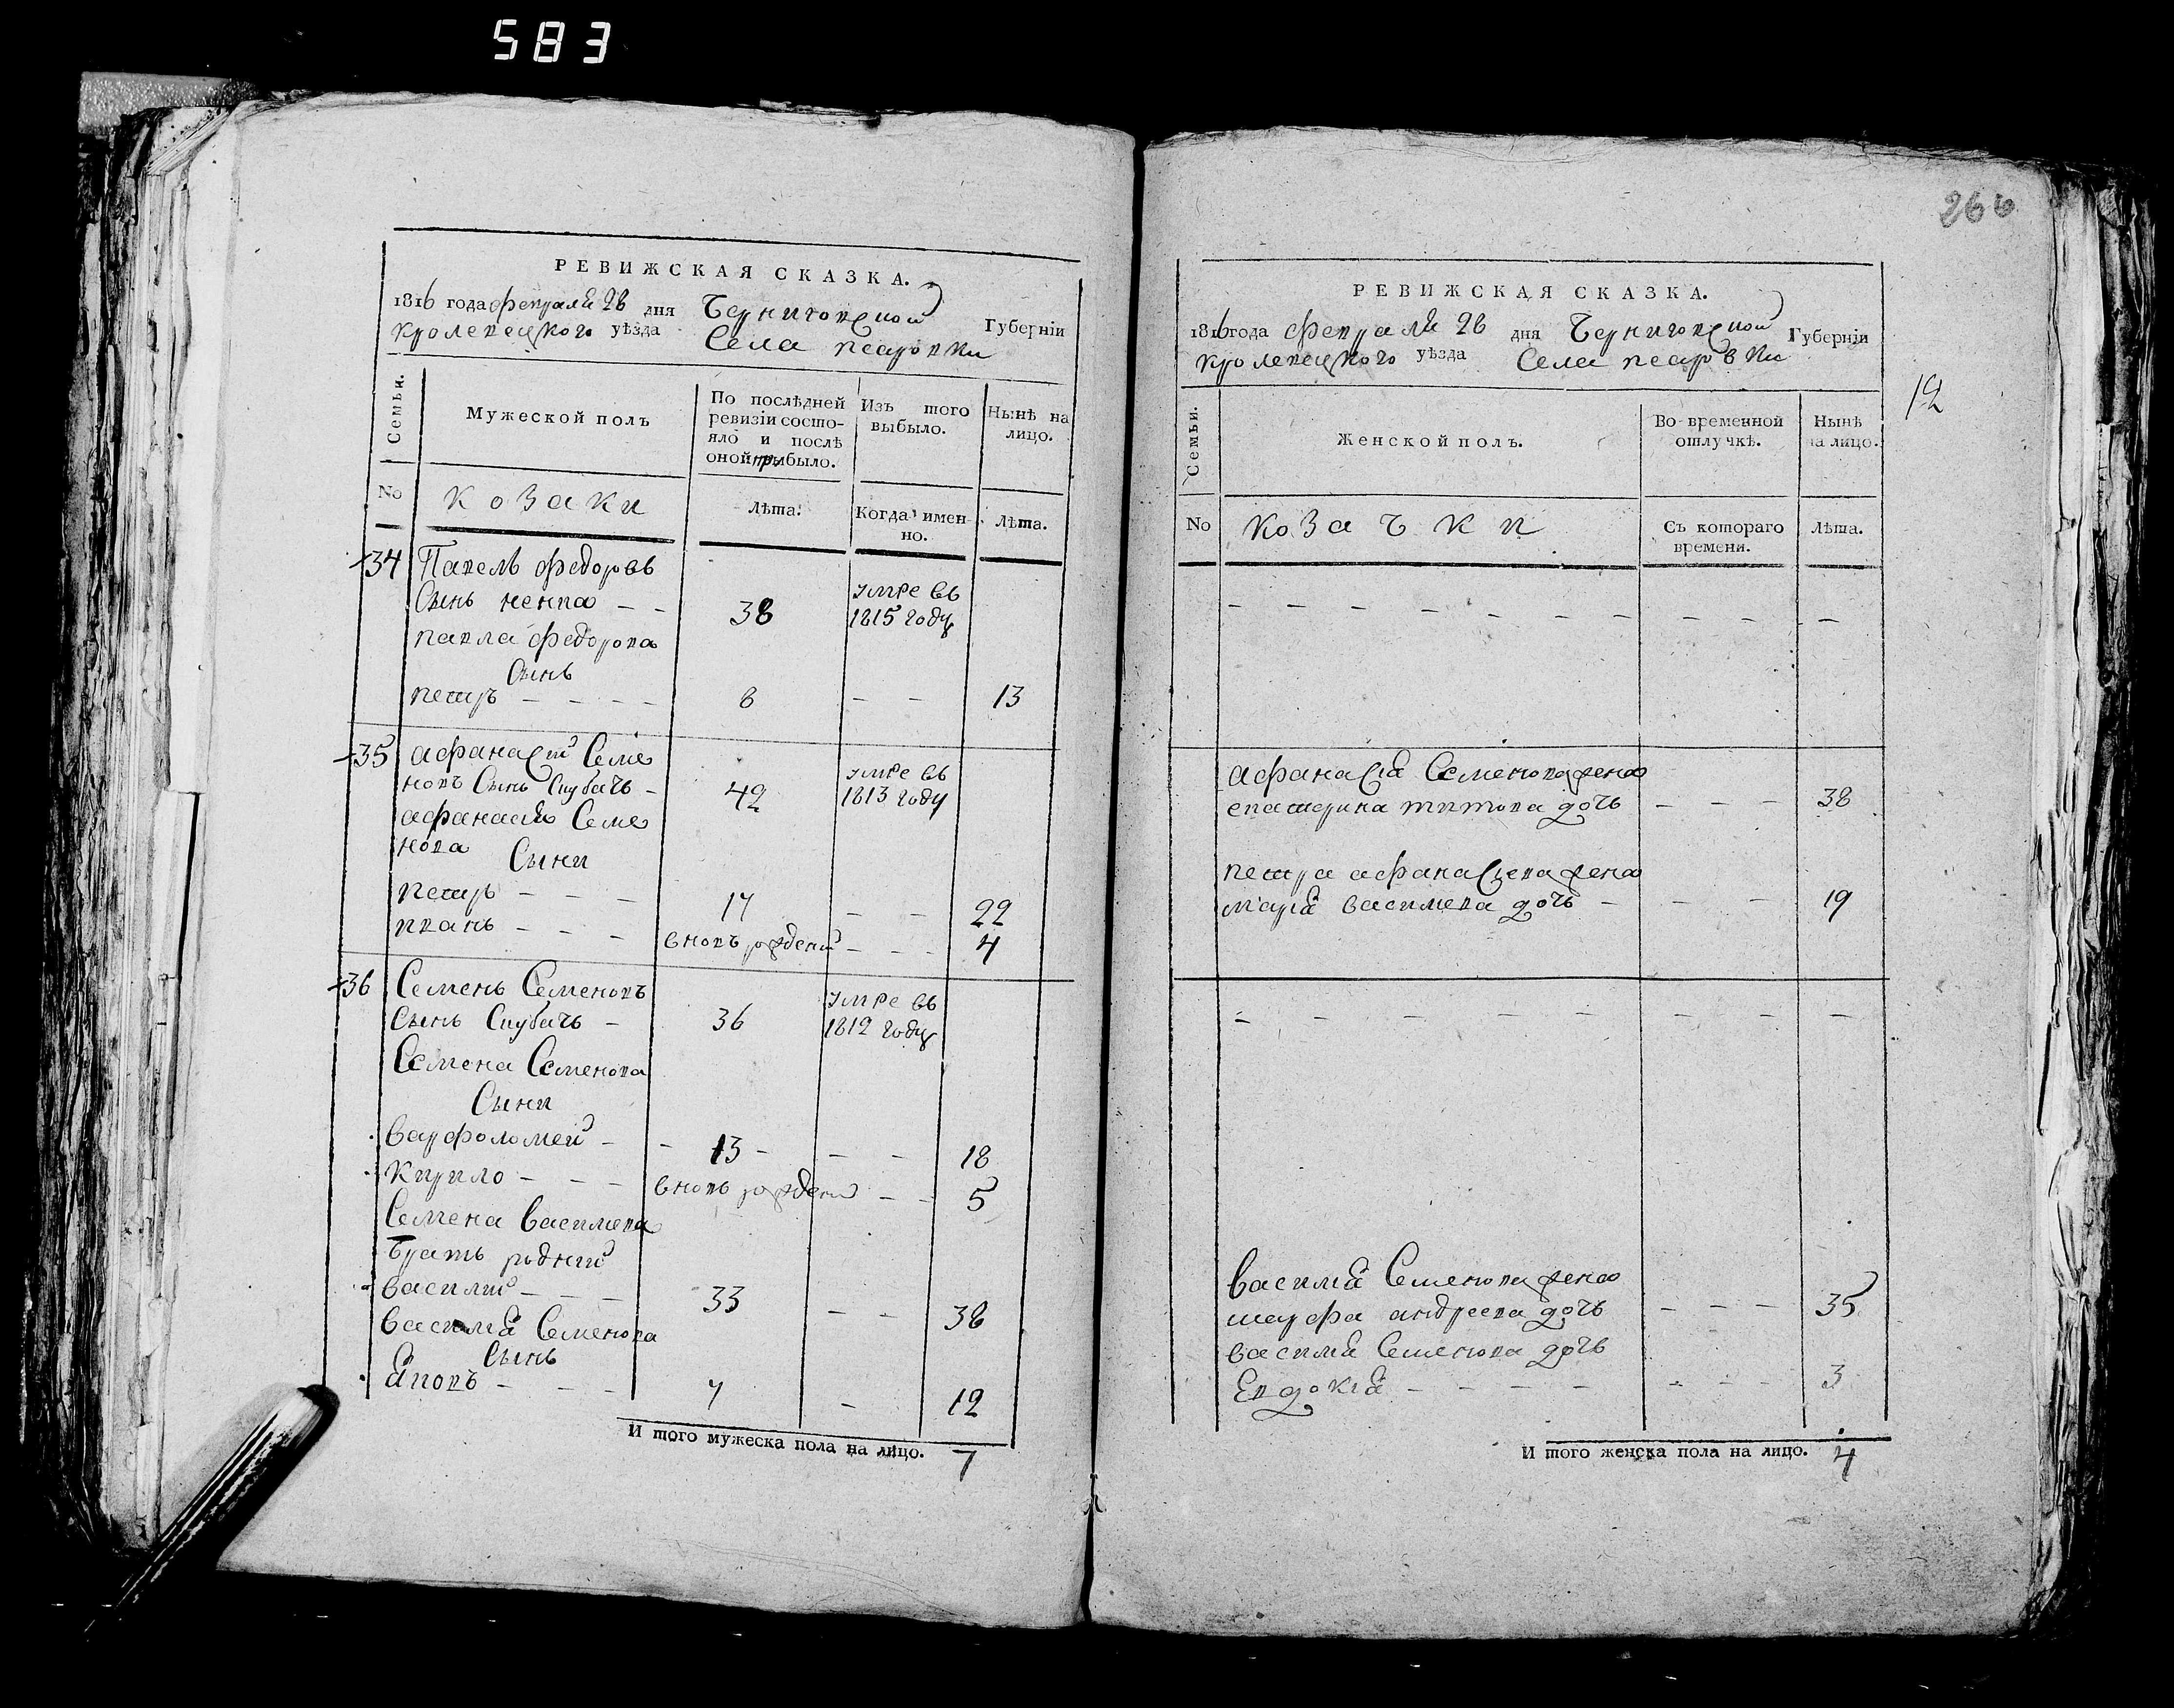 583
РЕВИЖСКАЯ СКАЗКА.
1816 года февраля 28 дня Черниговской Губерніи
кролевецкого уѣзда Села петровки
Семьи.
Мужеской полъ
По послѣдней ревизіи состояло и послѣ оной прибыло.
Изъ того выбыло.
Нынѣ на лицо.
No
козаки
Лѣта.
Когда имен-
но.
Лѣта.
34 Павелъ федоровъ
Сынъ ненпа 38 умре въ 1815 году
павла федорова
Сынъ
петръ 8 13
35 афанасий Семе
новъ Сынъ Скубачъ 42 умре въ 1813 году
афанасия Семе
нова
Сыни
петръ 17 22
иванъ вновь рождений 4
36 Семенъ Семеновъ
Сынъ Скубачъ 36 умре въ 1812 году
Семена Семенова
Сыни
варфоломей 13 18
кирило вновь рожденй 5
Семена василева
братъ родний
василий 33 38
василия Семенова
Сынъ
яковъ 7 12
И того мужеска пола на лицо. 7
266
12
РЕВИЖСКАЯ СКАЗКА.
1816 года февраля 28 дня Черниговской Губерніи
кролевецкого уѣзда Села петровки
Семьи.
Женской полъ.
Во временной отлучкѣ.
Нынѣ на лицо.
No
козачки
Съ котораго
времени.
Лѣта.
афанасия Семенова жена
екатерина титова дочь 38
петра афанасиева жена
мария василева дочь 19
василия Семенова жена
марфа андреева дочь 35
василия Семенова дочь
Евдокия 3
И того женска пола на лицо. 4